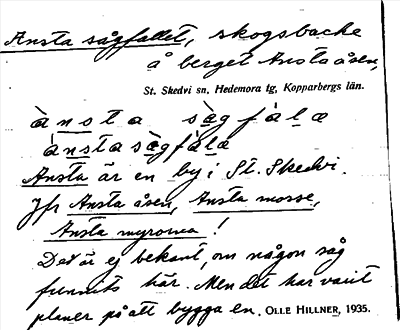 Ansta sågfallet, skogsbacke
å berget Ansta åsen,
St. Skedvi sn, Hedemora tg, Kopparbergs län.
ànsta sȧgfàlæ
ànstasàgfàlæ
Ansta är en by i St. Skedvi.
Jfr Ansta åsen, Ansta mosse,
Ansta myrorna!
Det är ej bekant, om någon såg
funnits här. Men det har varit
planer på att bygga en. OLLE HILLNER, 1935.